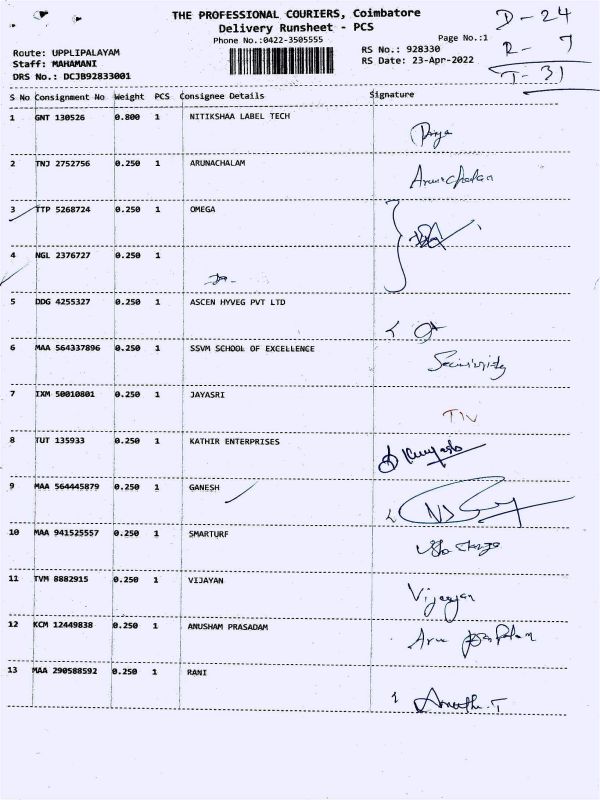 THE PROFESSIONAL COURIERS, Coimbatore
Delivery Runsheet - PCS
Phone No.:0422-3505555
Page No.:1
D - 24
R - 7
T - 31
Route: UPPLIPALAYAM
Staff: MAHAMANI
DRS No.: DCJB92833001
RS No.: 928330
RS Date: 23-Apr-2022
S No Consignment No Weight PCS Consignee Details Signature
1 GNT 130526 0.800 1 NITIKSHAA LABEL TECH
Priya
2 TNJ 2752756 0.250 1 ARUNACHALAM
Arunachalam
3 TTP 5268724 0.250 1 OMEGA
4 NGL 2376727 0.250 1
5 DDG 4255327 0.250 1 ASCEN HYVEG PVT LTD
6 MAA 564337896 0.250 1 SSVM SCHOOL OF EXCELLENCE
7 IXM 50010801 0.250 1 JAYASRI
8 TUT 135933 0.250 1 KATHIR ENTERPRISES
9 MAA 564445879 0.250 1 GANESH
10 MAA 941525557 0.250 1 SMARTURF
11 TVM 8882915 0.250 1 VIJAYAN
Vijayan
12 KCM 12449838 0.250 1 ANUSHAM PRASADAM
13 MAA 290588592 0.250 1 RANI